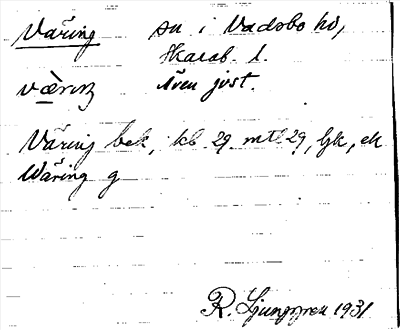 Väring sn i Vadsbo hd,
Skarab. l.
vǽrıŋ Även jvst.
Väring bek, kb 29. mtl 29, Gk, ek
Wäring g
R. Ljunggren 1931